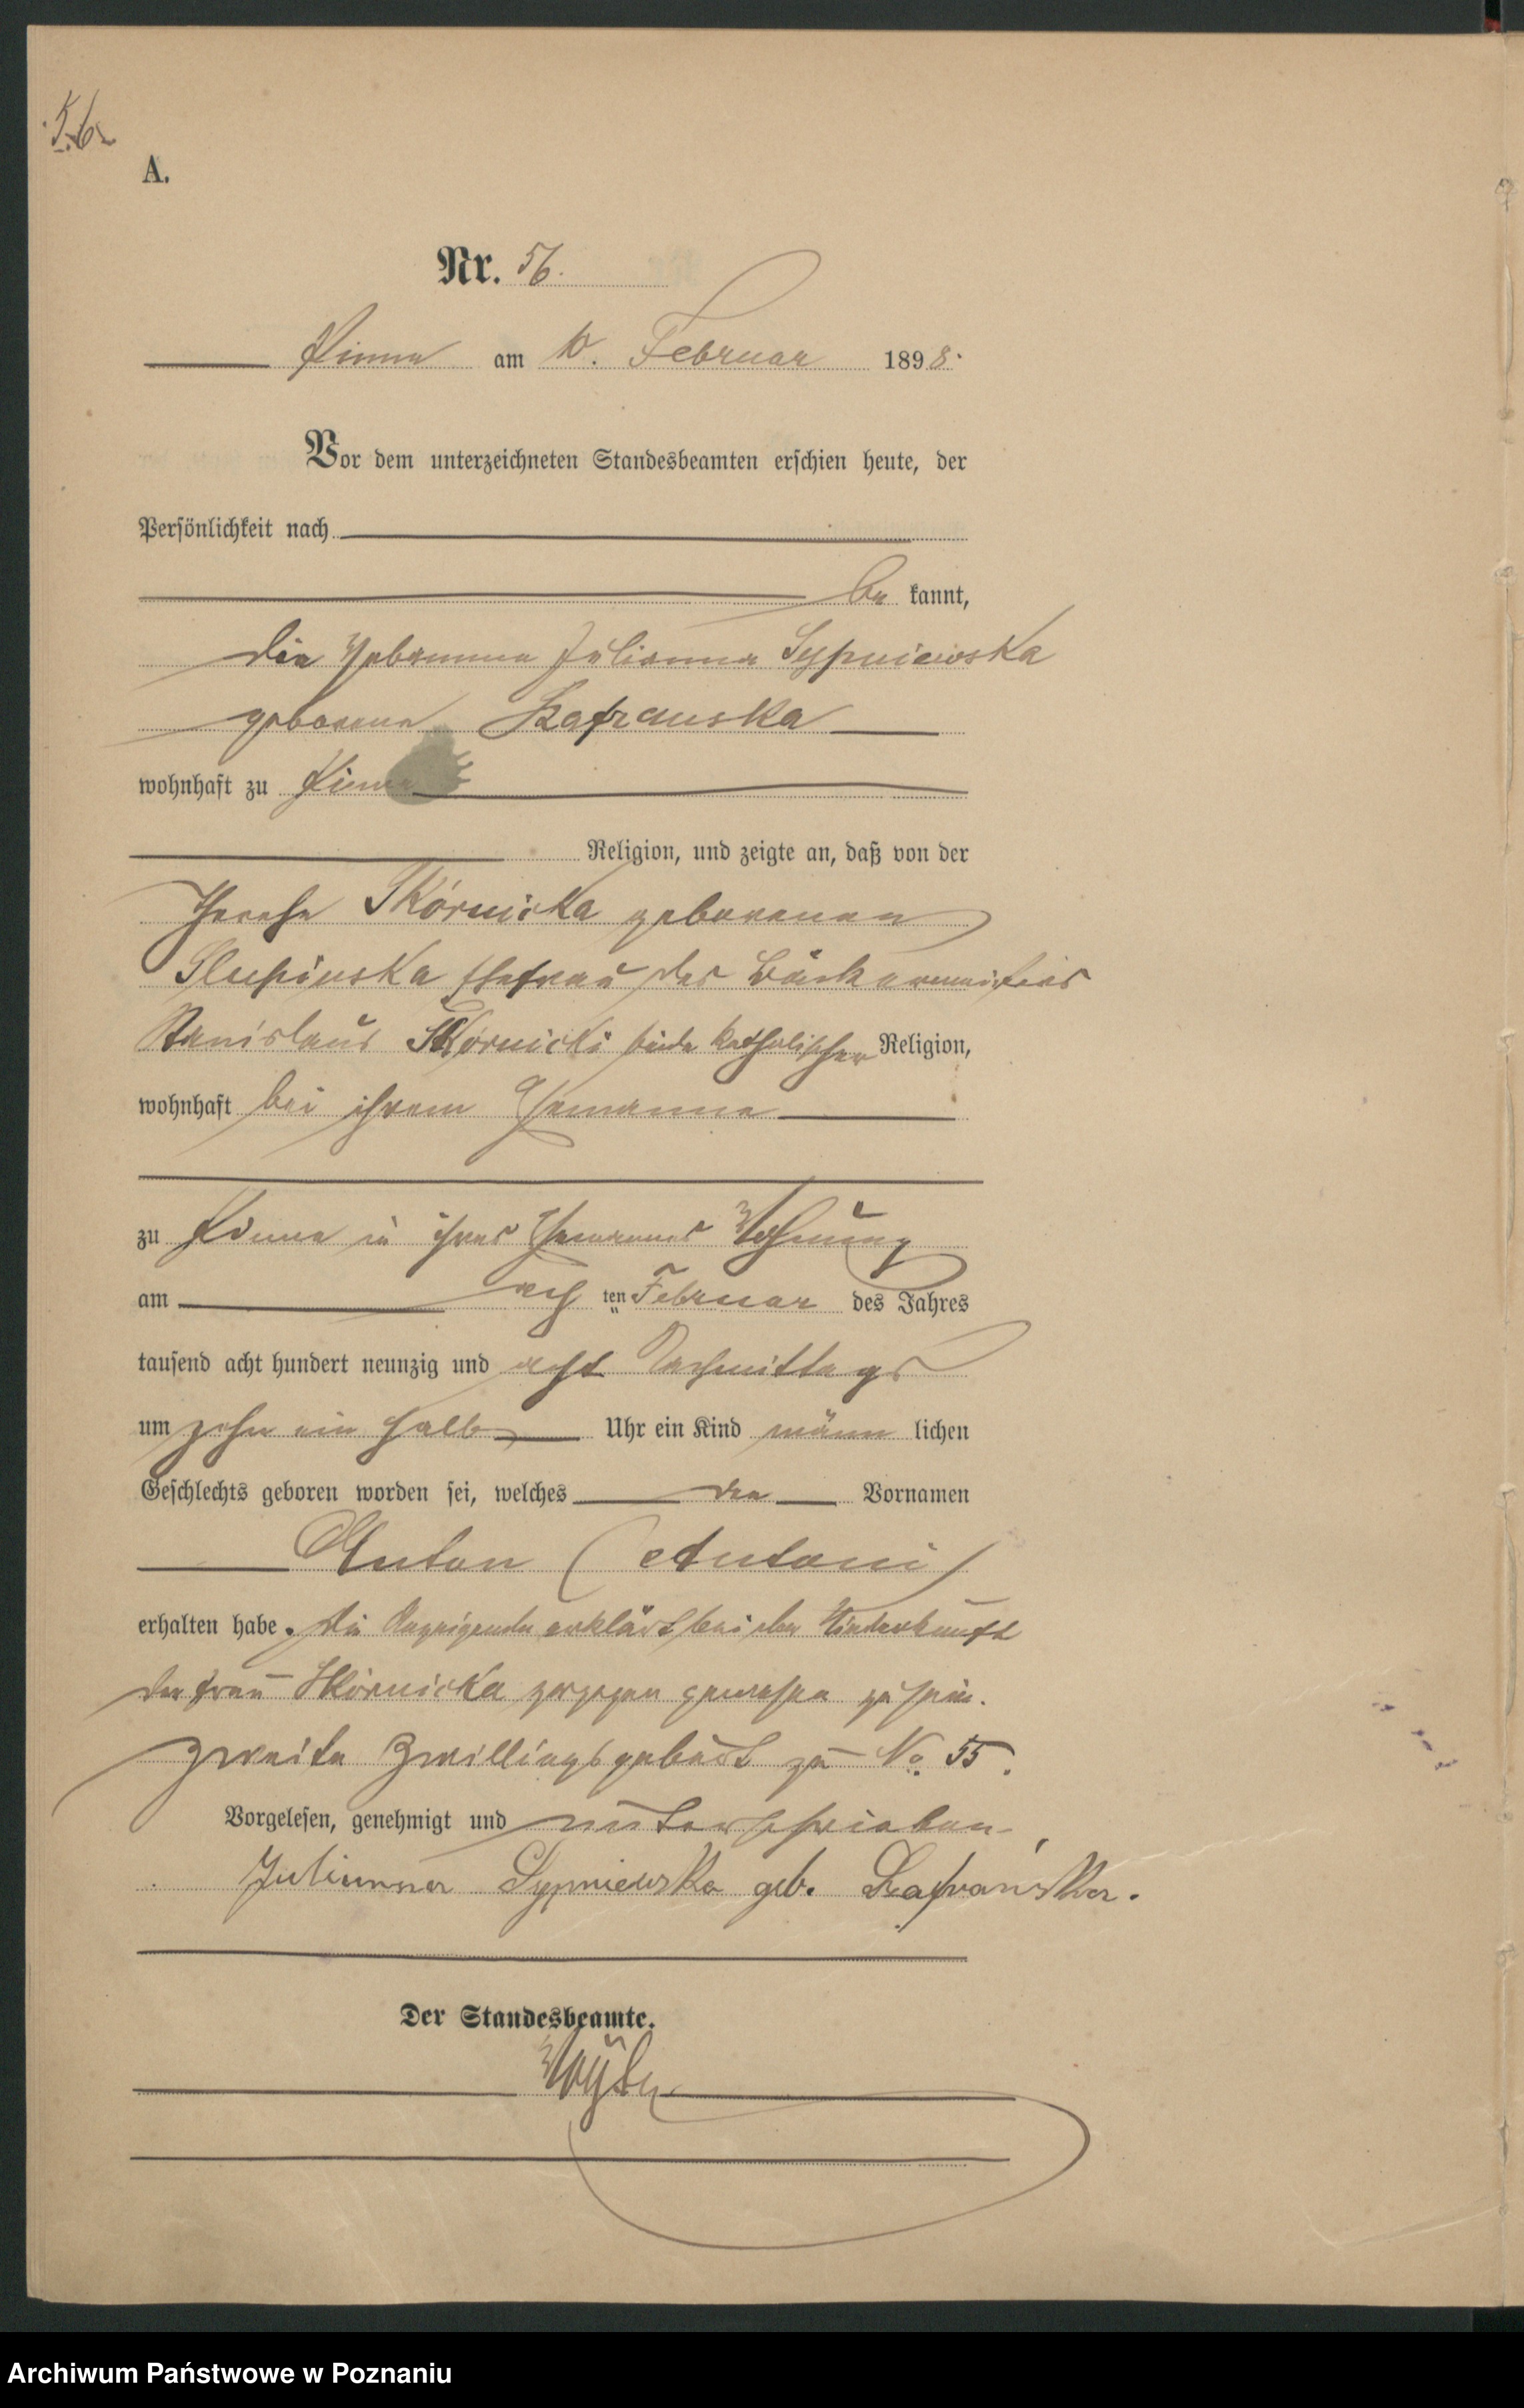 56
A.
Nr. 56.
Pinne am 10. Februar 1898.
Vor dem unterzeichneten Standesbeamten erschien heute, der
Persönlichkeit nach
be kannt,
die Hebamme Julianna Sypniewska
geborene Szafranska
wohnhaft zu Pinne
Religion, und zeigte an, daß von der
Therese Skórnicka geborenen
Slupinska Ehefrau des Bäckermeisters
Stanislaus Skórnicki beide katholischer Religion,
wohnhaft bei ihrem Ehemanne
zu Pinne in ihres Ehemannes Wohnung
am ach ten Februar des Jahres
tausend acht hundert neunzig und acht Nachmittags
um zehn ein halb Uhr ein Kind männ lichen
Geschlechts geboren worden sei, welches den Vornamen
Anton (Antoni)
erhalten habe. Die Anzeigende erklärt bei der Niederkunft
der Frau Skórnicka zugegen gewesen zu sein.
Zweite Zwillingsgeburt zu No. 55.
Vorgelesen, genehmigt und unterschrieben
Julianna Sypniewska geb. Szafrańska.
Der Standesbeamte.
Archiwum Państwowe w Poznaniu